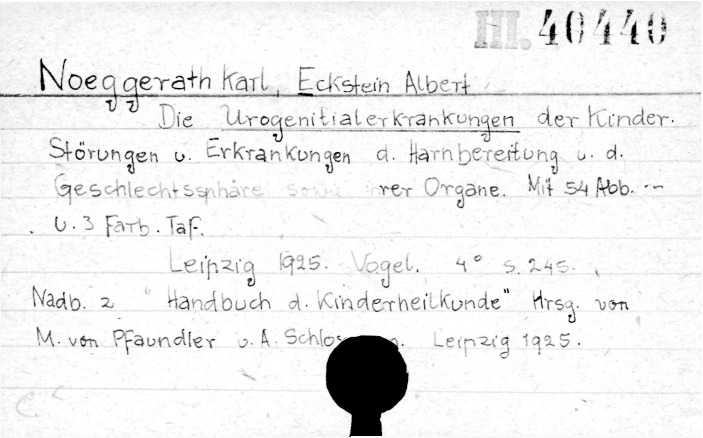 III. 40440
Noeggerath Karl, Eckstein Albert
Die Urogenitialerkrankungen der Kinder.
Störungen u. Erkrankungen d. Harnbereitung u. d.
Geschlechtssphäre sowie ihrer Organe. Mit 54 Abb. --
u. 3 Farb. Taf.
Leipzig 1925. Vogel. 4° S. 245.
Nadb. 2 "Handbuch d. Kinderheilkunde" Hrsg. von
M. von Pfaundler u. A. Leipzig 1925.